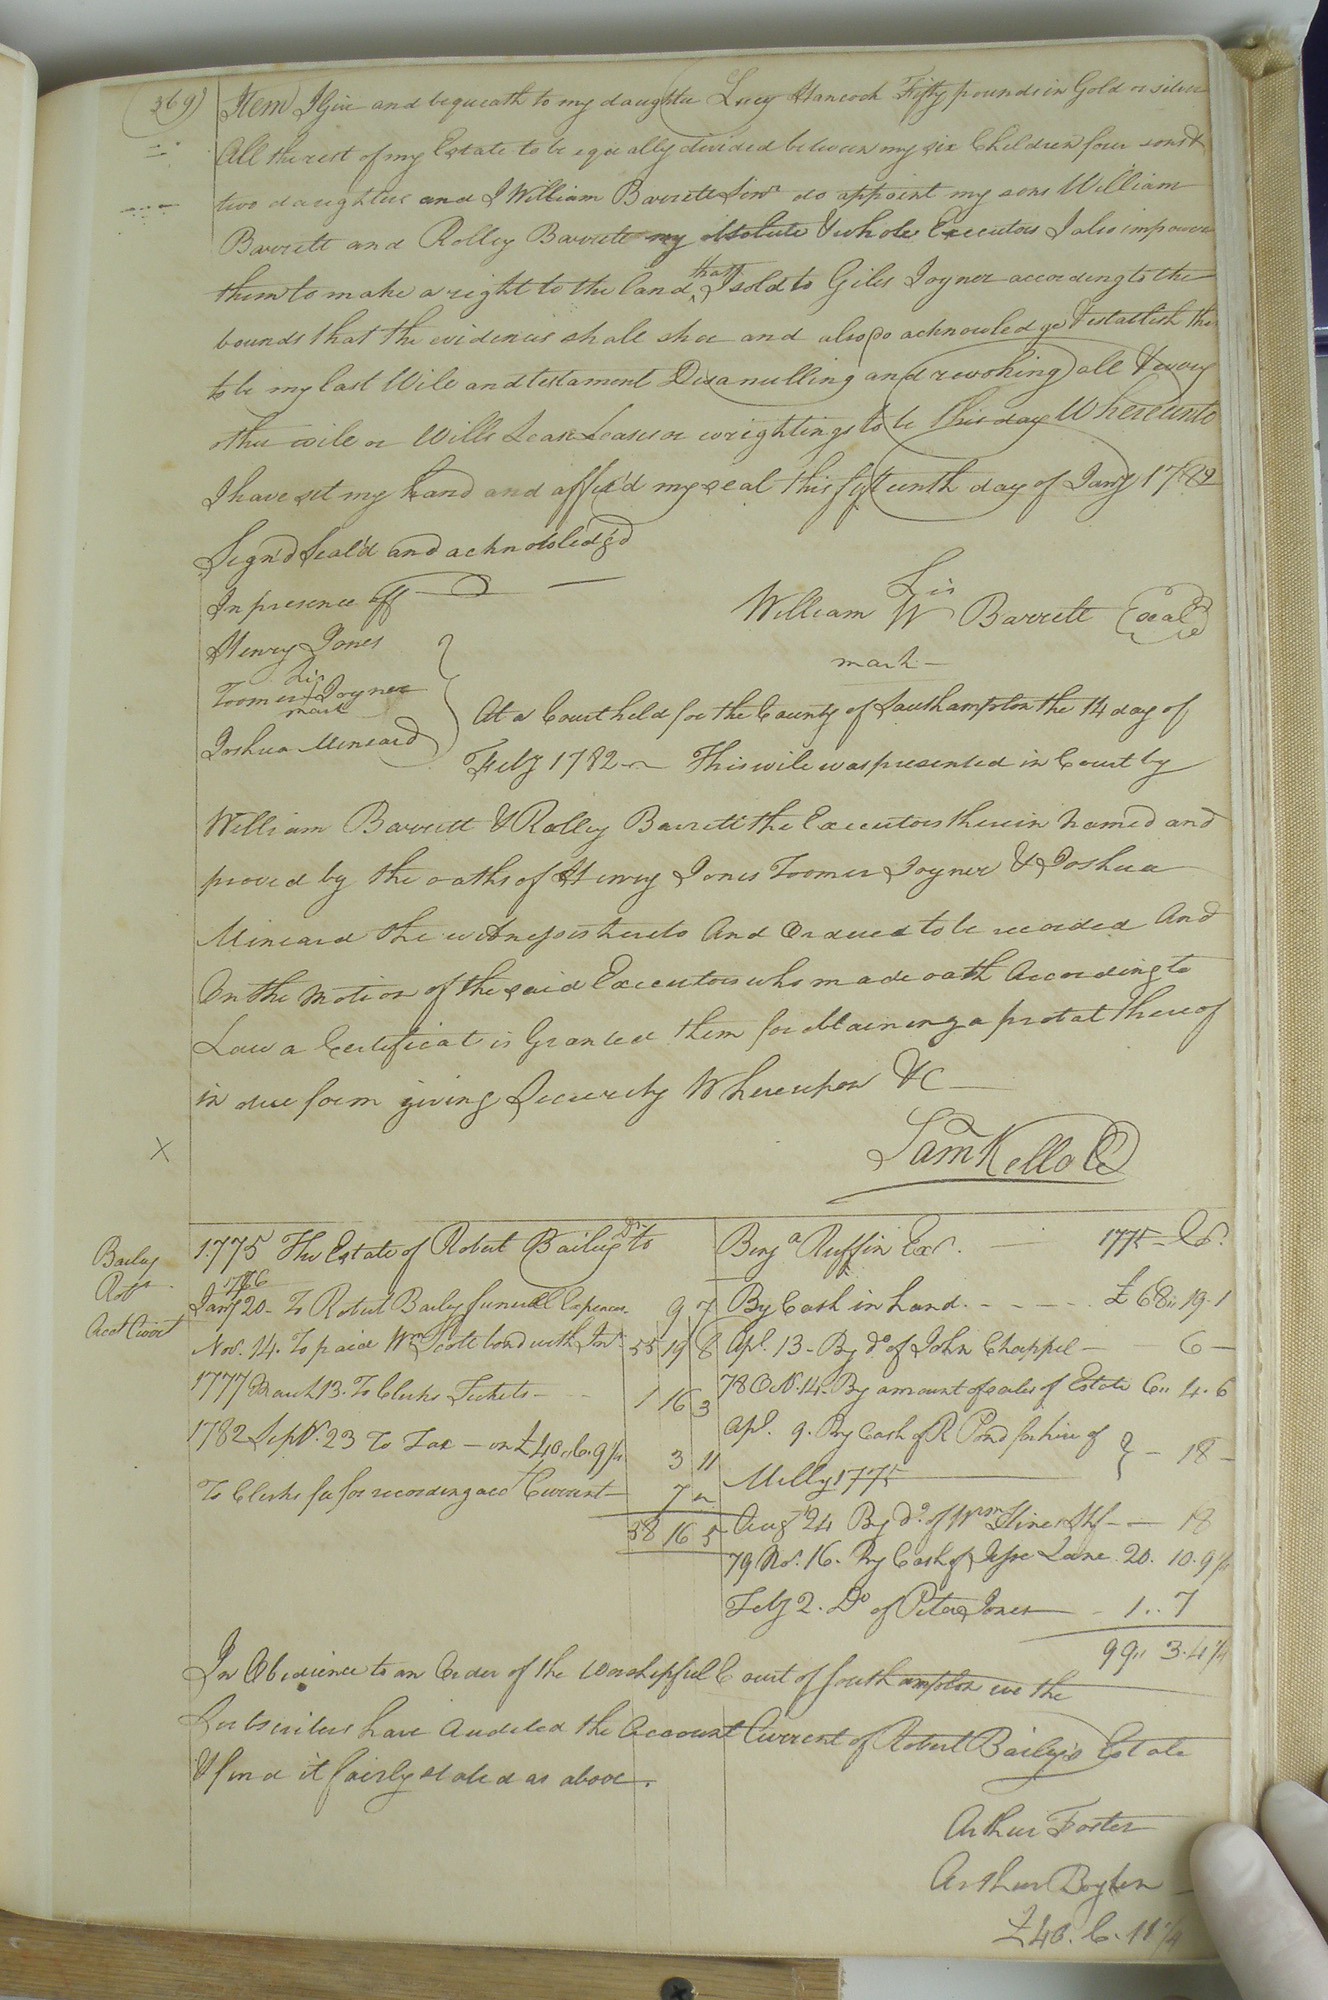 369)
Item I Give and bequeath to my daughter Lucy Hancock Fifty pounds in Gold or silver
All the rest of my Estate to be equeally divided between my six Children four sons &
two daughters and I William Barrett Sinr do appoint my sons William
Barrett and Rolley Barrett my absolute & whole Executors I also impower
them to make a right to the land that I sold to Giles Joyner according to the
bounds that the evidences shall shoe and also do acknowledge & establish this
to be my last Will and testament Disanulling and revoking all & every
other will or Wills Lease Leases or wrightings to be this day Whereunto
I have set my hand and affix'd my seal this fifteenth day of Jany 1782
Sign'd Seal'd and acknowledg'd
In presence off
his
William W Barrett Seal
mark
Henry Jones
his
Toomer Joyner
mark
Joshua Mineard
At a Court held for the County of Southampton the 14 day of
Feby 1782 This will was presented in Court by
William Barrett & Rolley Barrett the Executors therein named and
proved by the oaths of Henry Jones Toomer Joyner & Joshua
Mineard the witnesses thereto And Ordered to be recorded And
On the Motion of the said Executors who made oath According to
Law a Certificat is Granted them for obtaining a probat thereof
in due form giving Security Whereupon &C
Saml Kello CC
X
Bailey
Robt
Acct Curt
1775 The Estate of Robert Bailey Dr to
1776
Jany 20 To Robert Baily funeral Expences 9 7
Nov. 14. To paid Wm Scott bond with Int. 55 19 8
1777 March 13. To Clerks Tickets 1 16 3
1782 Sepr. 23 To Tax on £40.6.9¼ 3 11
To Clerks fee for recording acct Current 7
58 16 5
Benja Ruffin Exr. 1775 Cr.
By Cash in hand. £ 68 19 1
Apl. 13 By do of John Chappel 6
78 Nr. 14. By amount of sales of Estate 6 4. 6
Apl. 9. By Cash of R Pond for hire of
Milly 1775 18
Augt 24 By do of Wm Hines Shf 18
79 Nov. 16. By Cash of Jesse Lane 20. 10. 9¼
Feby 2. Do of Peter Jones 1 .. 7
99 3. 4¼
In Obedience to an Order of the Worshipfull Court of Southampton we the
Subscribers have Audited the Account Current of Robert Baily's Estate
& find it fairly stated as above.
Arthur Foster
Arthur Boykin
£40. 6. 11¼